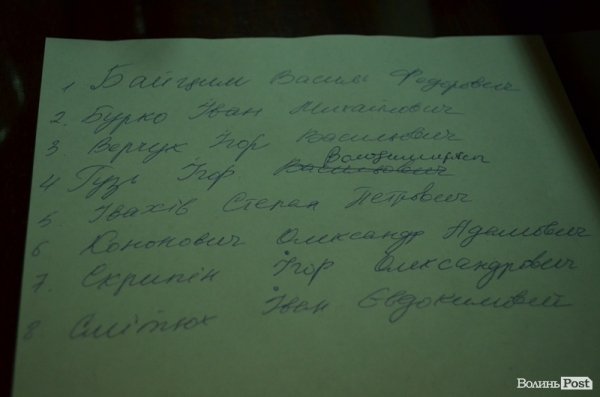 1 Байцим Васил Федорович
2. Бурко Іван Михайлович
3 Верчук Ігор Васильович
4 Гузь Ігор Васильович Володимирович
5. Івахів Степан Петрович
6 Кононович Олександр Адамович
7. Скрипін Ігор Олександрович
8. Смітюх Іван Євдокимовий
ВолиньPost